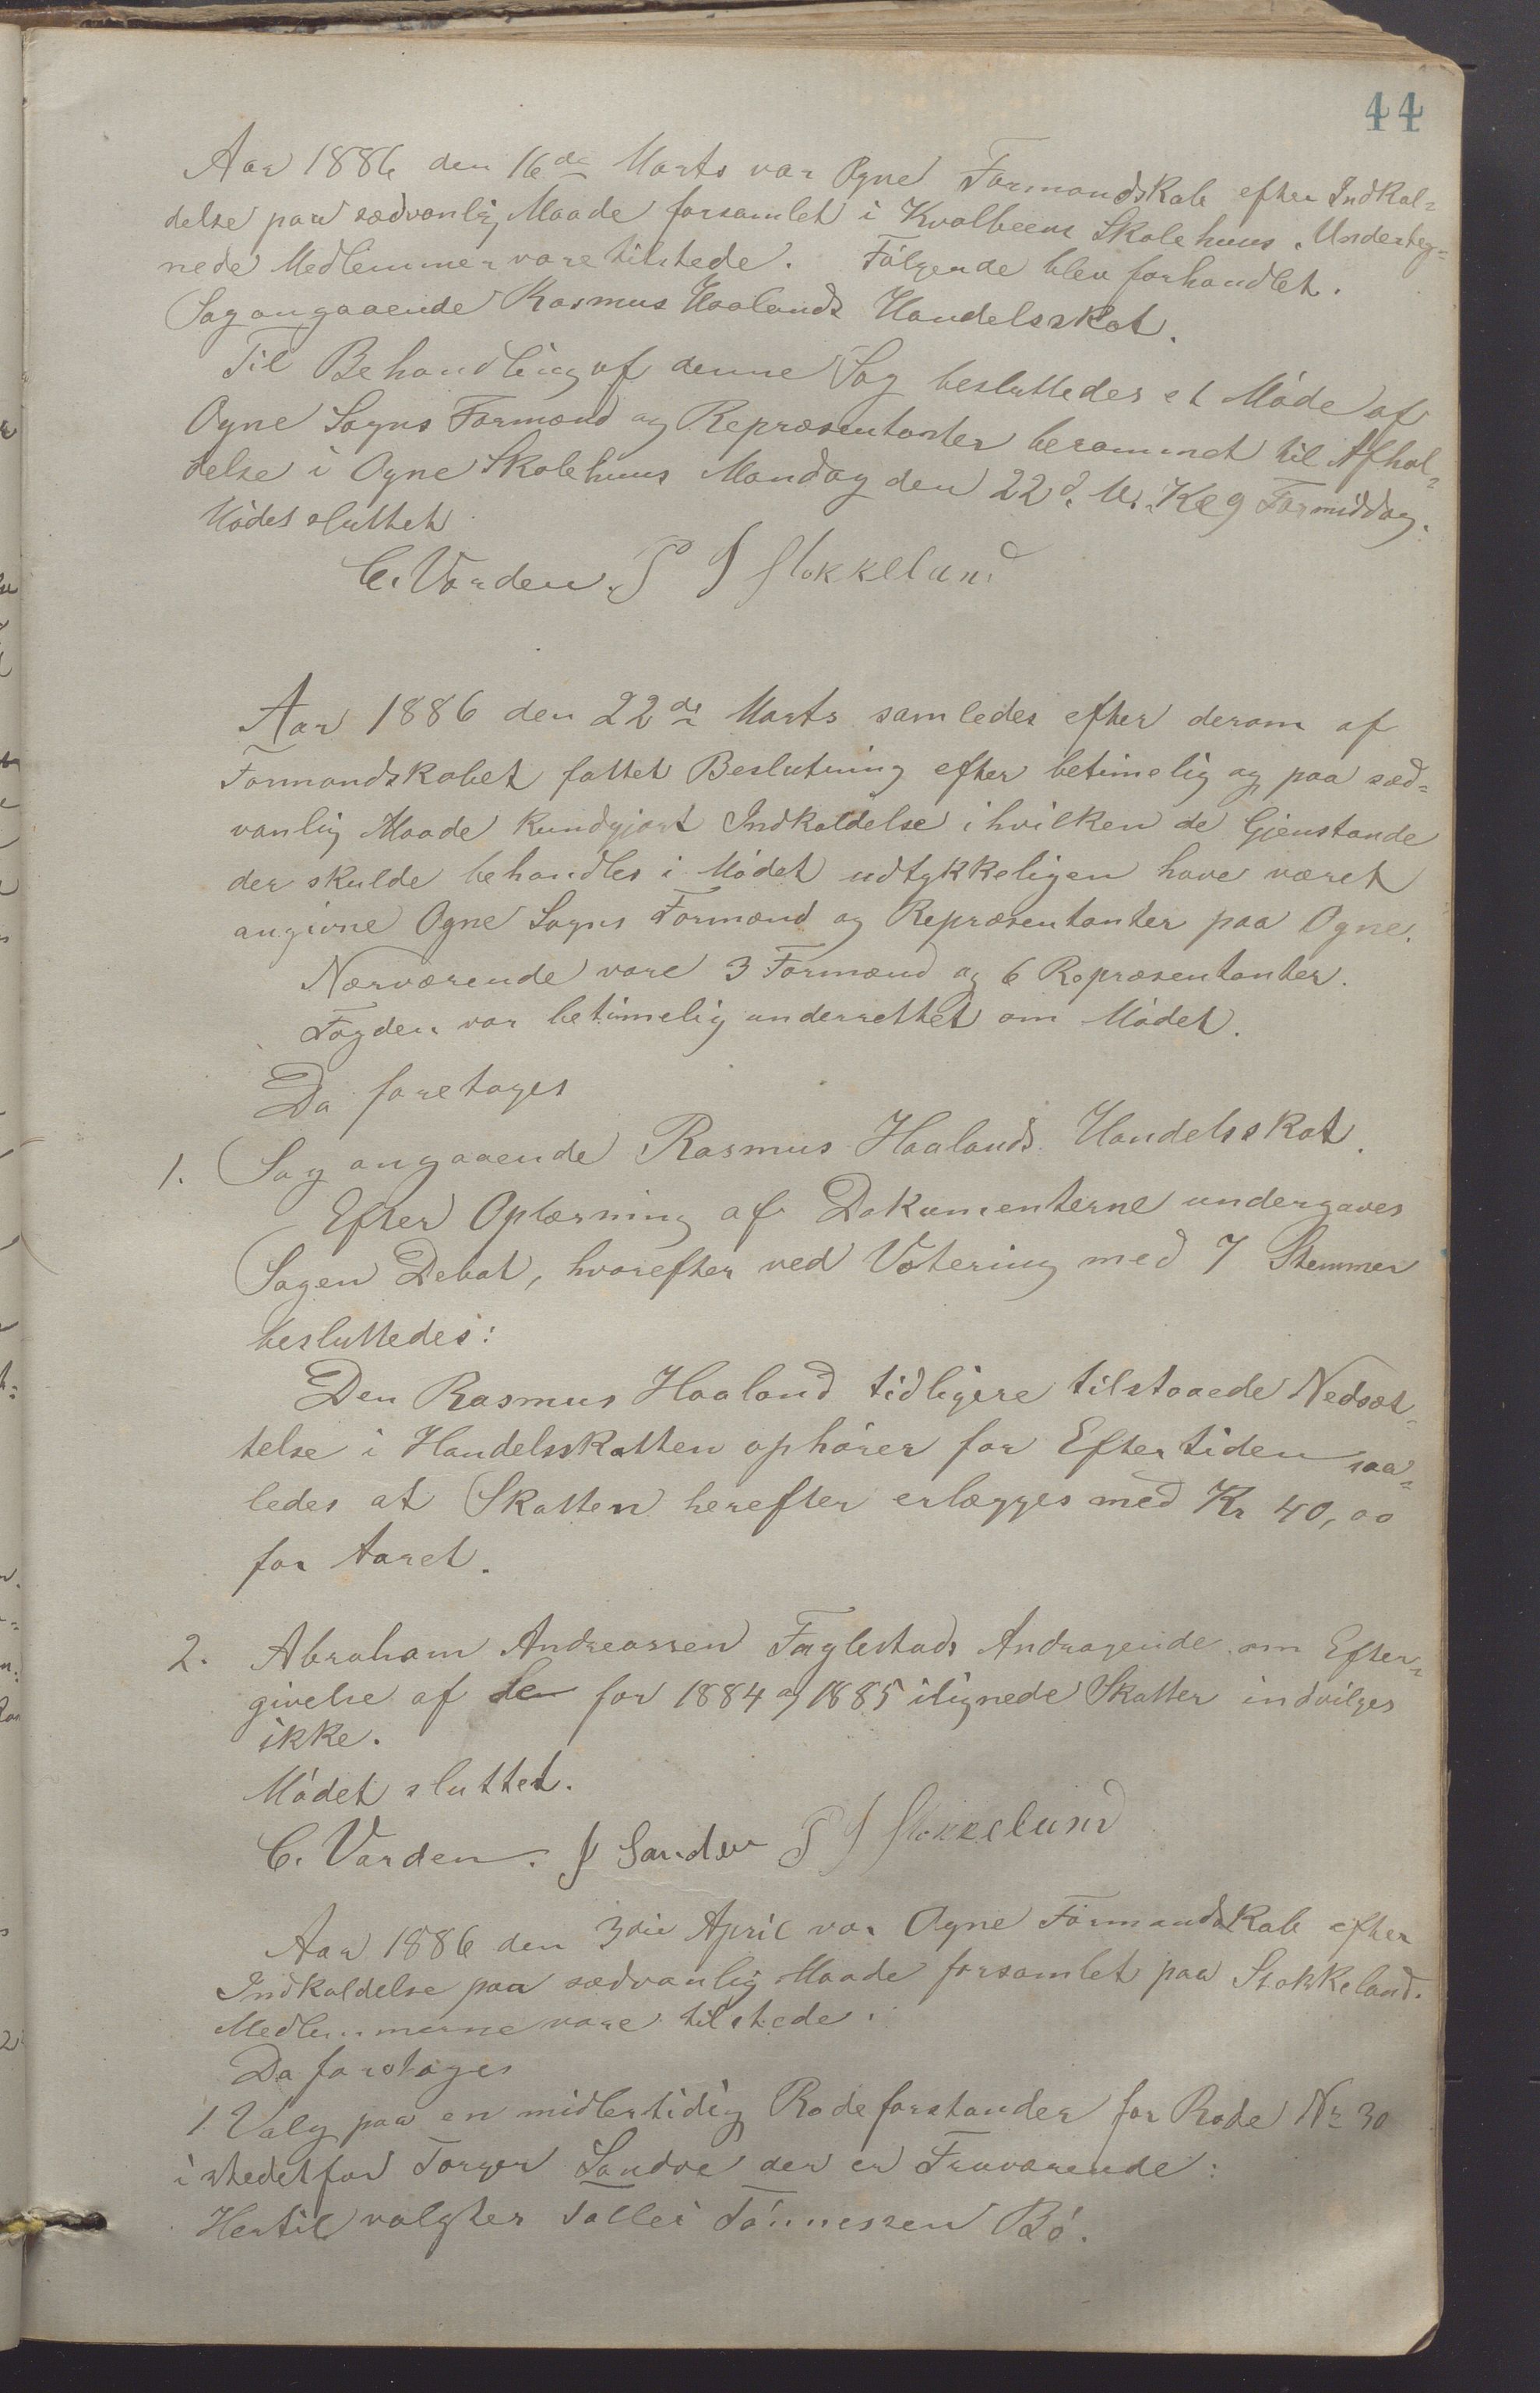 44
Aar 1886 den 16de Marts var Ogne Formandskab efter Indkal=
delse paa sædvanlig Maade forsamlet i Kvalbeens Skolehuus. Underteg=
nede Medlemmer vare tilstede. Følgende blev forhandlet.
Sag angaaende Rasmus Haalands Handelsskat.
Til Behandling af denne Sag besluttedes et Møde af
Ogne Sogns Formænd og Repræsentanter berammet til Afhol=
delse i Ogne Skolehuus Mandag den 22d. M. Kl 9 Formiddag.
Mødet sluttet
C. Varden. P J Stokkeland
Aar 1886 den 22de Marts samledes efter derom af
Formandskabet fattet Beslutning efter betimelig og paa sæd=
vanlig Maade kundgjort Indkaldelse i hvilken de Gjenstande
der skulde behandles i Mødet udtykkeligen have været
angivne Ogne Sogns Formænd og Repræsentanter paa Ogne.
Nærværende vare 3 Formænd og 6 Repræsentanter.
Fogden var betimelig underrettet om Mødet.
Da foretoges
1. Sag angaaende Rasmus Haalands Handelsskat.
Efter Oplæsning af Dokumenterne undergaves
Sagen Debat, hvorefter ved Votering med 7 Stemmer
besluttedes:
Den Rasmus Haaland tidligere tilstaaede Nedsæt=
telse i Handelsskatten ophører for Eftertiden saa=
ledes at Skatten herefter erlægges med Kr 40,00
for Aaret.
2. Abraham Andreassen Fuglestads Andragende om Efter=
givelse af de for 1884 og 1885 ilignede Skatter indvilges
ikke.
Mødet sluttet.
C. Varden. J Sandve P J Stokkeland
Aar 1886 den 3die April var Ogne Formandskab efter
Indkaldelse paa sædvanlig Maade forsamlet paa Stokkeland.
Medlemmerne vare tilstede.
Da foretoges
1. Valg paa en midlertidig Rodeforstander for Rode Nr 30
istedetfor Torger Sandve der er Fraværende:
Hertil valgtes Tollei Tønnessen Bø.